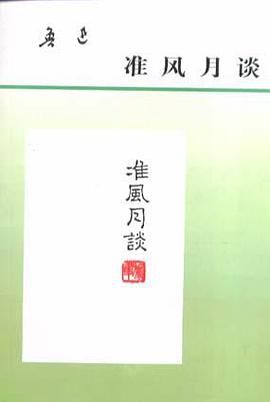 鲁迅
准风月谈
准風月談